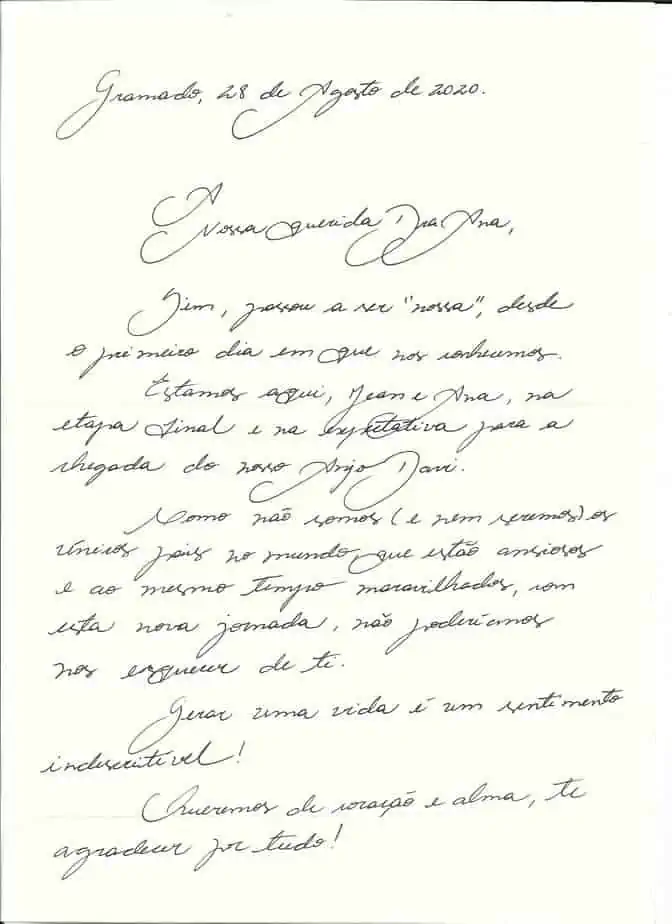 Gramado, 28 de Agosto de 2020.
A
Nossa querida Dra Ana,
Sim, passou a ser "nossa", desde
o primeiro dia em que nos conhecemos.
Estamos aqui, Jean e Ana, na
etapa final e na expectativa para a
chegada do nosso Anjo Davi.
Como não somos (e nem seremos) os
únicos pais no mundo que estão ansiosos
e ao mesmo tempo maravilhados, com
esta nova jornada, não poderíamos
nos esquecer de ti.
Gerar uma vida é um sentimento
indescritível!
Queremos de coração e alma, te
agradecer por tudo!